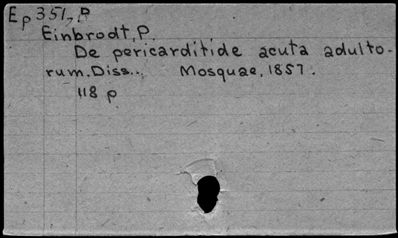 Ep 351, P
Einbrodt, P.
De pericarditide acuta adulto-
rum. Diss.. Mosquae, 1857.
118 p